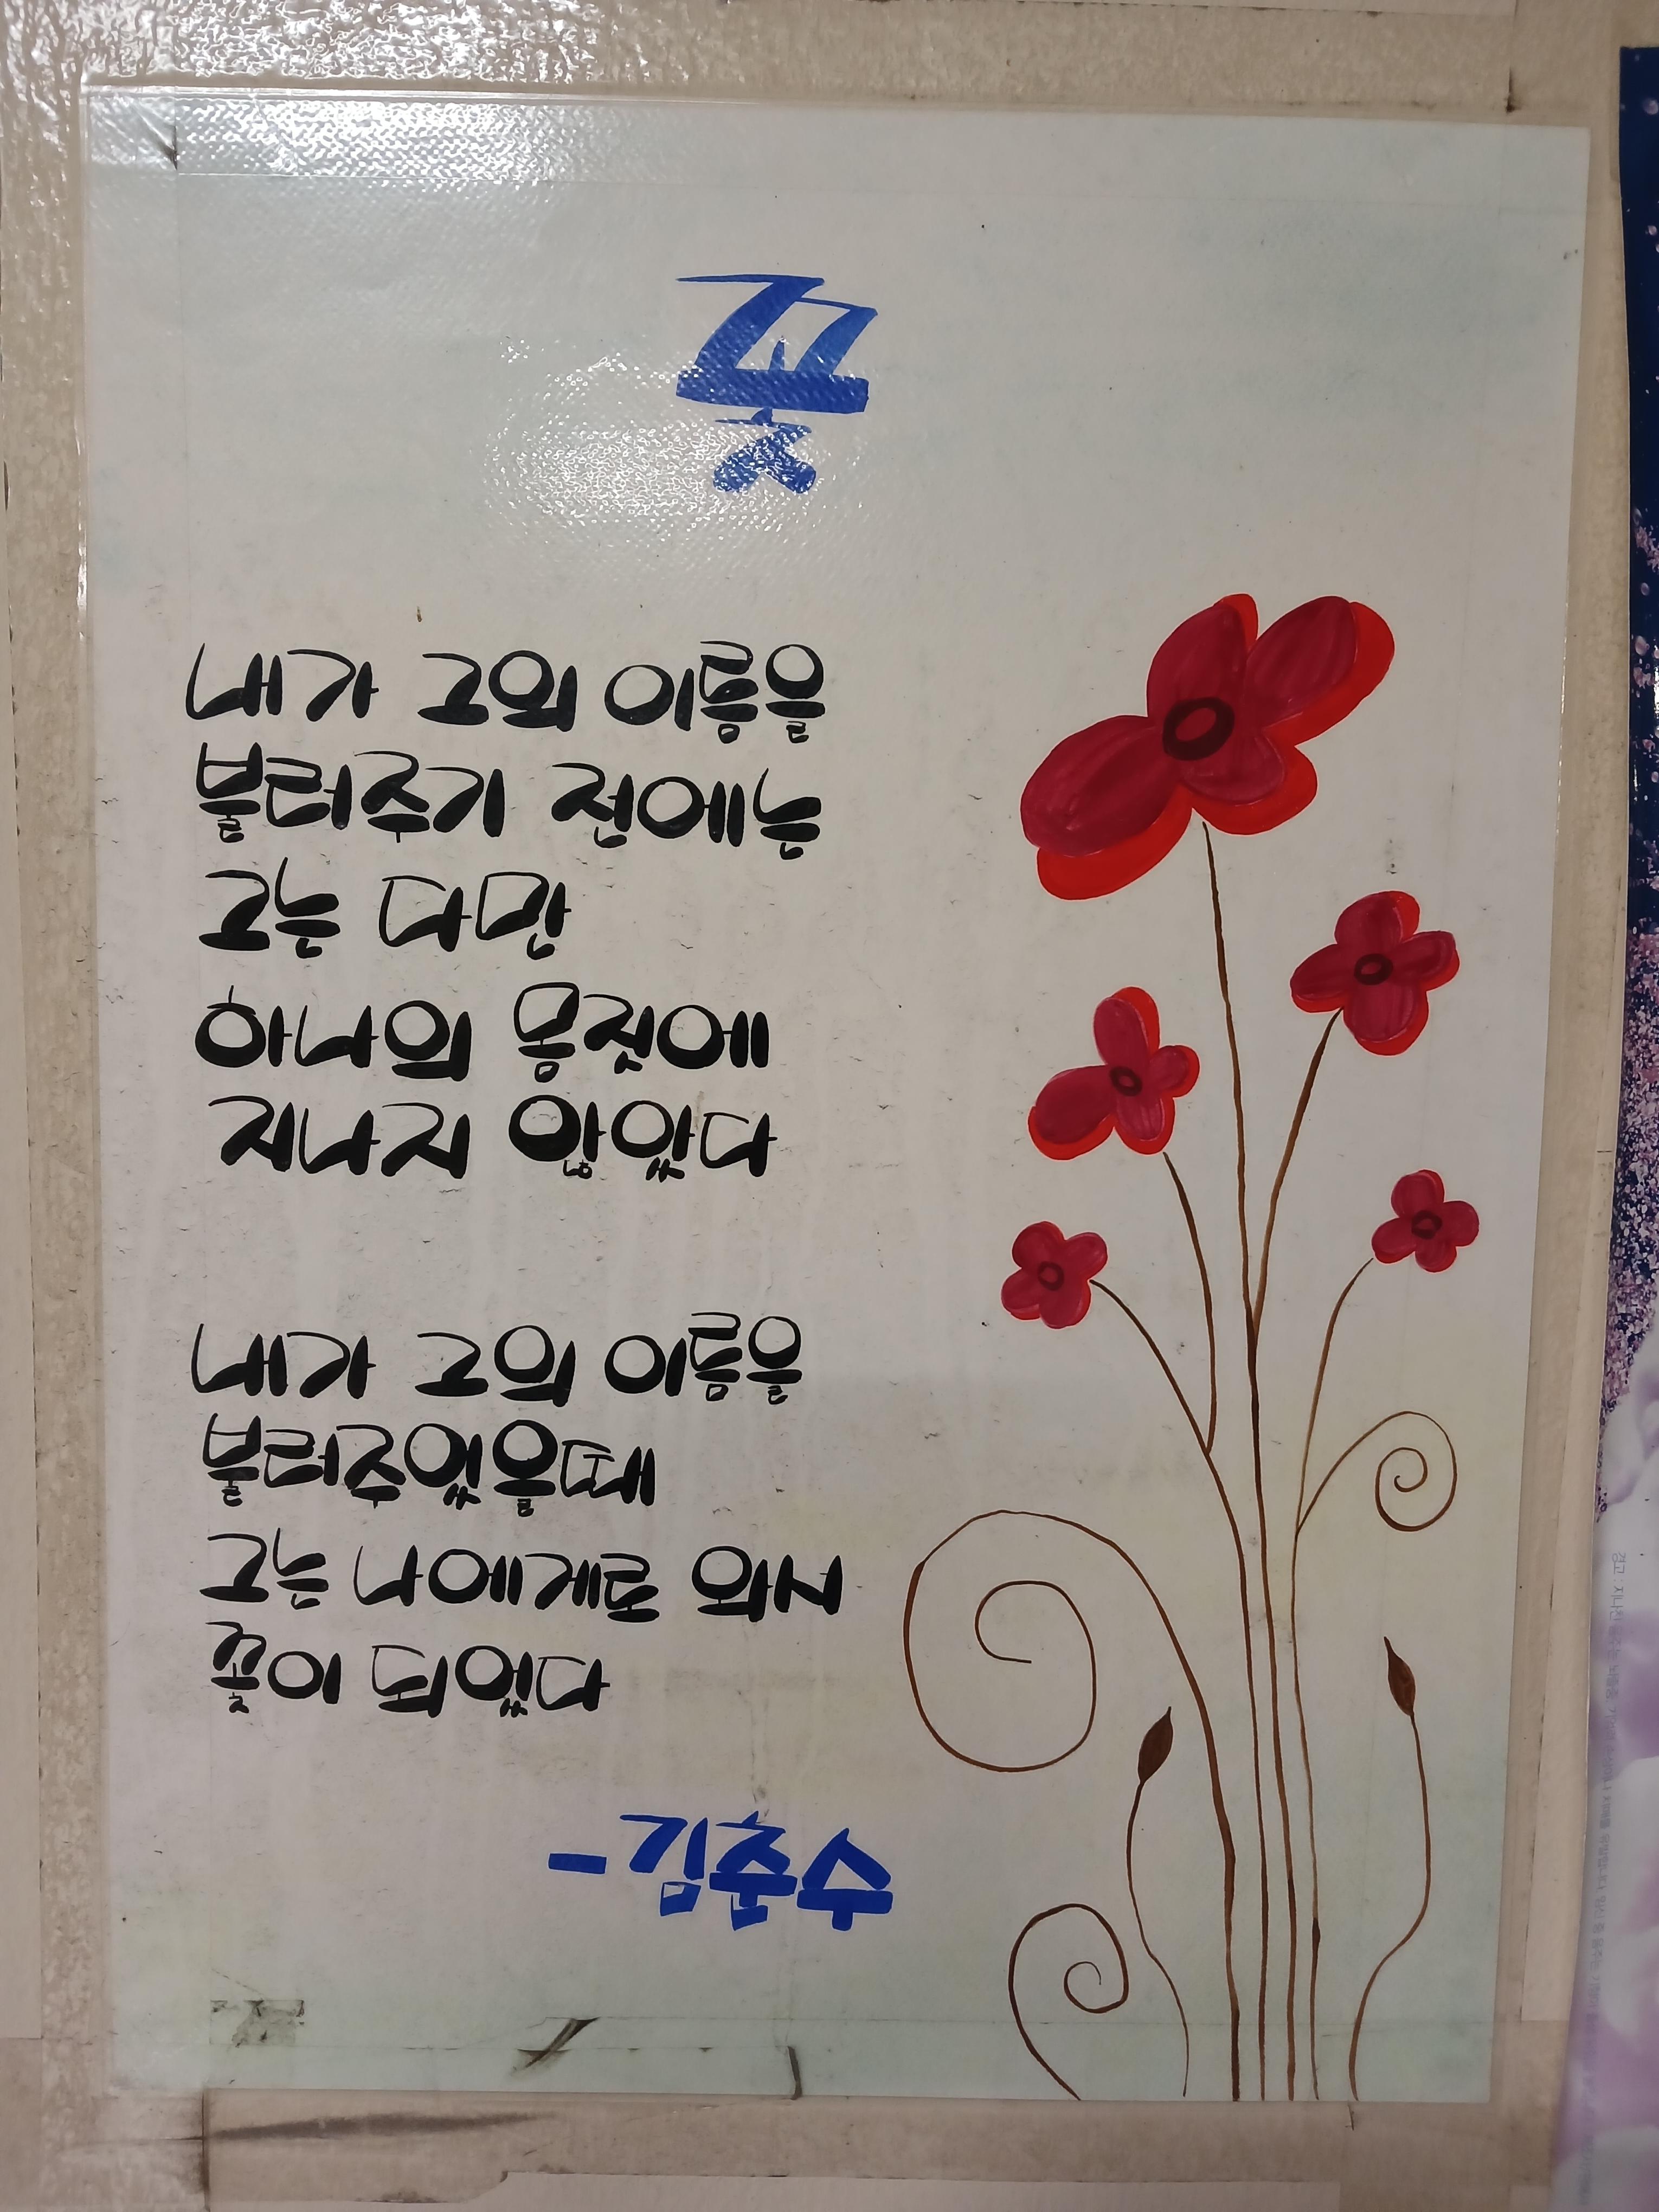 꽃
내가 그의 이름을
불러주기 전에는
그는 다만
하나의 몸짓에
지나지 않았다
내가 그의 이름을
불러주었을때
그는 나에게로 와서
꽃이 되었다
- 김춘수